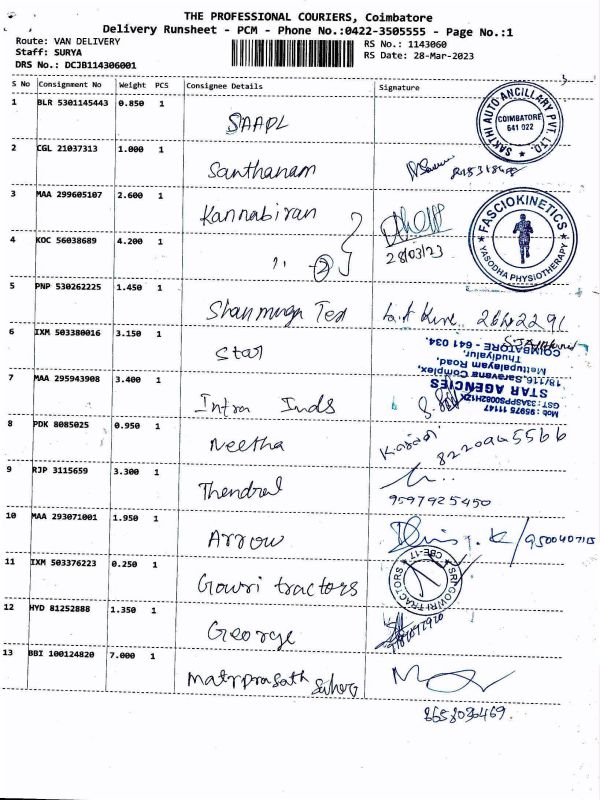 THE PROFESSIONAL COURIERS, Coimbatore
Delivery Runsheet - PCM - Phone No.:0422-3505555 - Page No.:1
Route: VAN DELIVERY
Staff: SURYA
DRS No.: DCJB114306001
RS No.: 1143060
RS Date: 28-Mar-2023
S No Consignment No Weight PCS Consignee Details Signature
1 BLR 5301145443 0.850 1 SAAPL
SAKTHI AUTO ANCILLARY PVT. LTD.
COIMBATORE
641 022
2 CGL 21037313 1.000 1 Santhanam
3 MAA 299605107 2.600 1 Kannabiran
28/03/23
FASCIOKINETICS
YASODHA PHYSIOTHERAPY
4 KOC 56038689 4.200 1 ,, 2
5 PNP 530262225 1.450 1 Shanmuga Tex
6 IXM 503380016 3.150 1 Star
Mob : 95975 11147
GST : 33ASPPS0082H1ZK
STAR AGENCIES
18/116, Saravana Complex,
Mettupalayam Road,
Thudiyalur,
COIMBATORE - 641 034
7 MAA 295943908 3.400 1 Intra Inds
8 PDK 8085025 0.950 1 Neetha
9 RJP 3115659 3.300 1 Thendral
9597925450
10 MAA 293071001 1.950 1 Arrow
11 IXM 503376223 0.250 1 Gowri tractors
SRI GOWRI TRACTORS
CBE-17
12 HYD 81252888 1.350 1 George
13 BBI 100124820 7.000 1
8658096469.